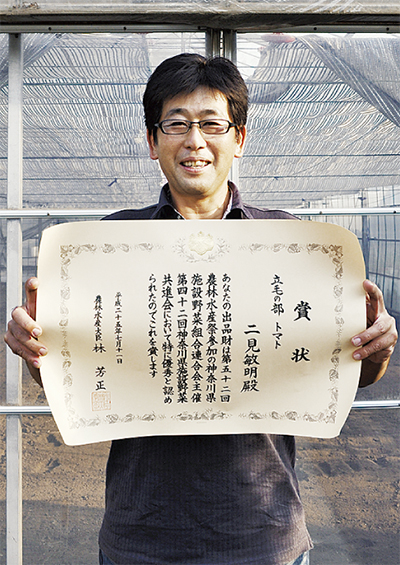 賞状
立毛の部 トマト
二見敏明殿
あなたの出品財は第五十二回
農林水産祭参加の神奈川県
施設野菜組合連合会主催
第四十二回神奈川県施設野菜
共進会において特に優秀と認め
られたのでこれを賞します
平成二十五年七月十一日
農林水産大臣 林 芳正